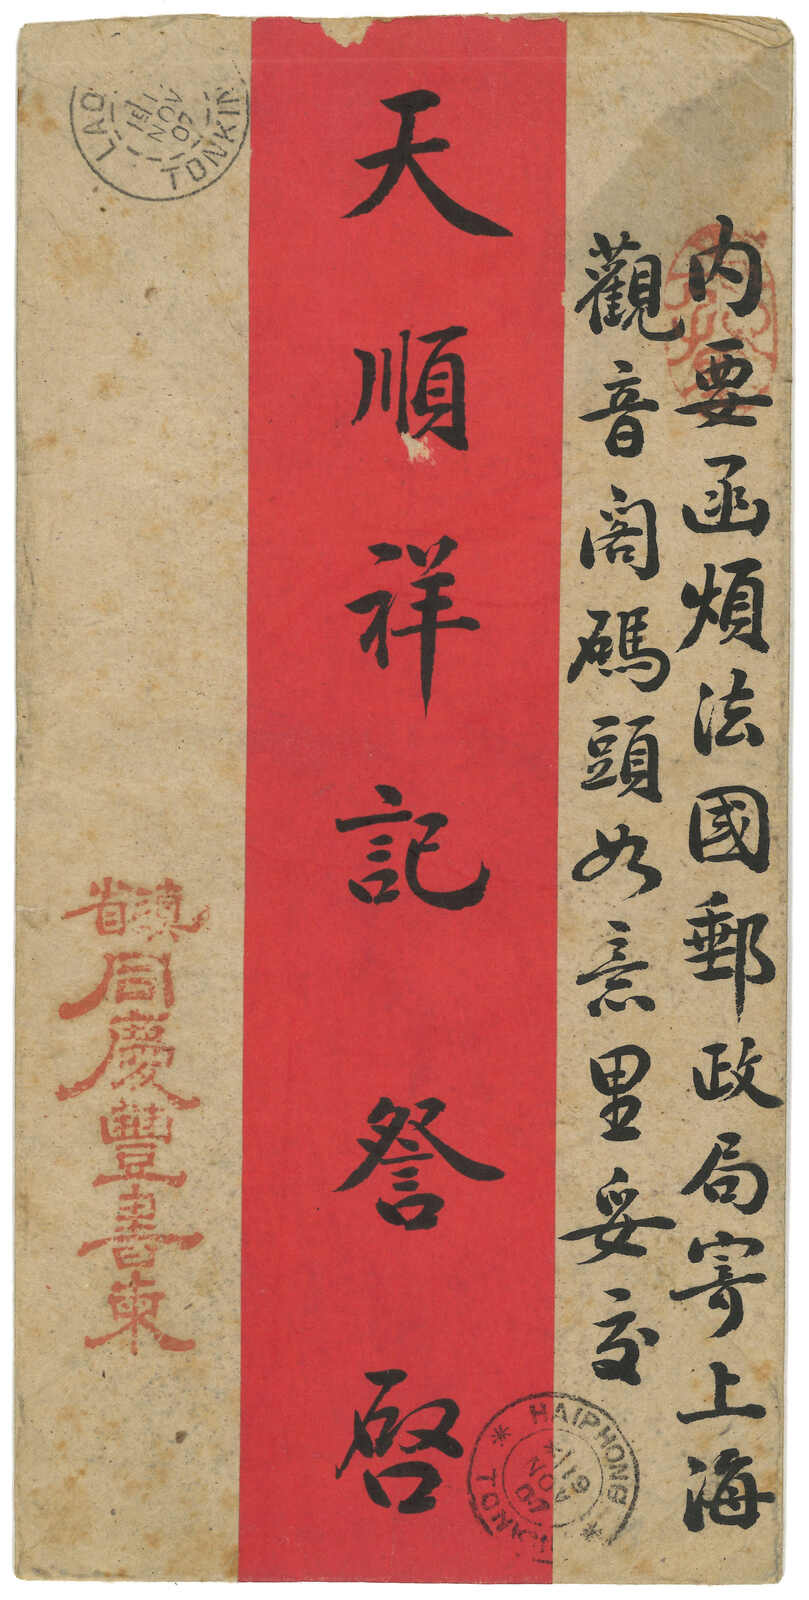 内要函煩法國郵政局寄上海
觀音阁碼頭如意里妥交
天順祥記詧啓
滇省
同慶豐書柬
LAO
TONKIN
NOV
07
HAIPHONG
19
NOV
07